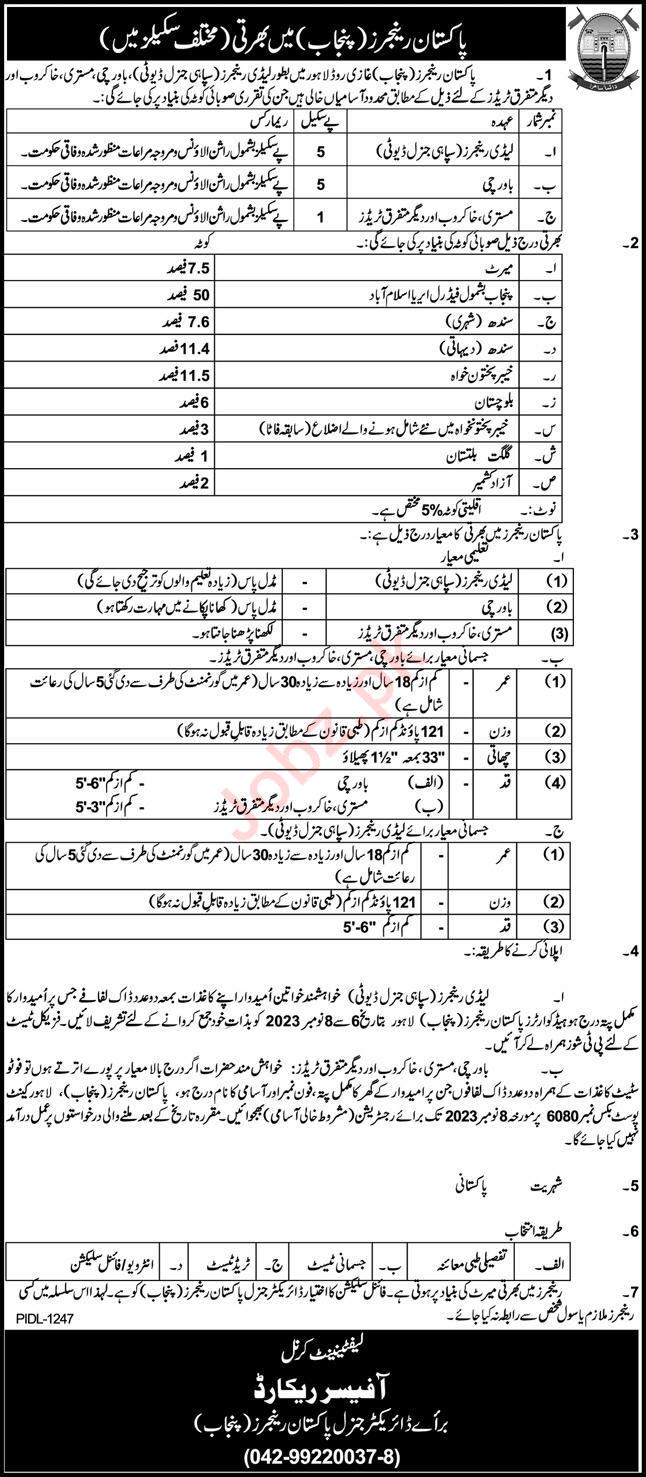 پاکستان رینجرز (پنجاب) میں بھرتی (مختلف سکیلز میں)
1۔ پاکستان رینجرز (پنجاب) غازی روڈ لاہور میں بطور لیڈی رینجرز (سپاہی جنرل ڈیوٹی)، باورچی، مستری، خاکروب اور
دیگر متفرق ٹریڈز کے لئے ذیل کے مطابق محدود آسامیاں خالی ہیں جن کی تقرری صوبائی کوٹہ کی بنیاد پر کی جائے گی:۔
نمبر شمار عہدہ پے سکیل ریمارکس
ا۔ لیڈی رینجرز (سپاہی جنرل ڈیوٹی) 5 پے سکیلز بشمول راشن الاؤنس و مروجہ مراعات منظور شدہ وفاقی حکومت۔
ب۔ باورچی 5 پے سکیلز بشمول راشن الاؤنس و مروجہ مراعات منظور شدہ وفاقی حکومت۔
ج۔ مستری، خاکروب اور دیگر متفرق ٹریڈز 1 پے سکیلز بشمول راشن الاؤنس و مروجہ مراعات منظور شدہ وفاقی حکومت۔
2۔ بھرتی درج ذیل صوبائی کوٹہ کی بنیاد پر کی جائے گی:۔ کوٹہ
ا۔ میرٹ 7.5 فیصد
ب۔ پنجاب بشمول فیڈرل ایریا اسلام آباد 50 فیصد
ج۔ سندھ (شہری) 7.6 فیصد
د۔ سندھ (دیہاتی) 11.4 فیصد
ر۔ خیبر پختون خواہ 11.5 فیصد
ز۔ بلوچستان 6 فیصد
س۔ خیبر پختونخواہ میں نئے شامل ہونے والے اضلاع (سابقہ فاٹا) 3 فیصد
ش۔ گلگت بلتستان 1 فیصد
ص۔ آزاد کشمیر 2 فیصد
نوٹ:۔ اقلیتی کوٹہ 5% مختص ہے۔
3۔ پاکستان رینجرز میں بھرتی کا معیار درج ذیل ہے:۔
ا۔ تعلیمی معیار
(1) لیڈی رینجرز (سپاہی جنرل ڈیوٹی) - مڈل پاس (زیادہ تعلیم والوں کو ترجیح دی جائے گی)
(2) باورچی - مڈل پاس (کھانا پکانے میں مہارت رکھتا ہو)
(3) مستری، خاکروب اور دیگر متفرق ٹریڈز - لکھنا پڑھنا جانتا ہو۔
ب۔ جسمانی معیار برائے باورچی، مستری، خاکروب اور دیگر متفرق ٹریڈز۔
(1) عمر - کم از کم 18 سال اور زیادہ سے زیادہ 30 سال (عمر میں گورنمنٹ کی طرف سے دی گئی 5 سال کی رعائت
شامل ہے)
(2) وزن - 121 پاؤنڈ کم از کم (طبی قانون کے مطابق زیادہ قابل قبول نہ ہوگا)
(3) چھاتی - 33" بمعہ 1½" پھیلاؤ
(4) قد - (الف) باورچی - کم از کم 5'-6"
(ب) مستری، خاکروب اور دیگر متفرق ٹریڈز - کم از کم 5'-3"
ج۔ جسمانی معیار برائے لیڈی رینجرز (سپاہی جنرل ڈیوٹی)۔
(1) عمر - کم از کم 18 سال اور زیادہ سے زیادہ 30 سال (عمر میں گورنمنٹ کی طرف سے دی گئی 5 سال کی
رعائت شامل ہے)
(2) وزن - 121 پاؤنڈ کم از کم (طبی قانون کے مطابق زیادہ قابل قبول نہ ہوگا)
(3) قد - کم از کم 5'-6"
4۔ اپلائی کرنے کا طریقہ:۔
ا۔ لیڈی رینجرز (سپاہی جنرل ڈیوٹی) خواہشمند خواتین اُمیدوار اپنے کاغذات بمعہ دو عدد ڈاک لفافے جس پر اُمیدوار کا
مکمل پتہ درج ہو ہیڈ کوارٹرز پاکستان رینجرز (پنجاب) لاہور بتاریخ 6 سے 8 نومبر 2023 کو بذات خود جمع کروانے کے لئے تشریف لائیں۔ فزیکل ٹیسٹ
کے لئے پی ٹی شوز ہمراہ لے کر آئیں۔
ب۔ باورچی، مستری، خاکروب اور دیگر متفرق ٹریڈز: خواہش مند حضرات اگر درج بالا معیار پر پورے اُترتے ہوں تو فوٹو
سٹیٹ کاغذات کے ہمراہ دو عدد ڈاک لفافوں جن پر اُمیدوار کے گھر کا مکمل پتہ، فون نمبر اور آسامی کا نام درج ہو، پاکستان رینجرز (پنجاب)، لاہور کینٹ
پوسٹ بکس نمبر 6080 پر مورخہ 8 نومبر 2023 تک برائے رجسٹریشن (مشروط خالی آسامی) بھجوائیں۔ مقررہ تاریخ کے بعد ملنے والی درخواستوں پر عمل درآمد
نہیں کیا جائے گا۔
5۔ شہریت پاکستانی
6۔ طریقہ انتخاب
الف۔ تفصیلی طبی معائنہ ب۔ جسمانی ٹیسٹ ج۔ ٹریڈ ٹیسٹ د۔ انٹرویو/فائنل سلیکشن
7۔ رینجرز میں بھرتی میرٹ کی بنیاد پر ہوتی ہے۔ فائنل سلیکشن کا اختیار ڈائریکٹر جنرل پاکستان رینجرز (پنجاب) کو ہے۔ لہٰذا اس سلسلہ میں کسی
رینجرز ملازم یا سول شخص سے رابطہ نہ کیا جائے۔
PIDL-1247
لیفٹیننٹ کرنل
آفیسر ریکارڈ
برائے ڈائریکٹر جنرل پاکستان رینجرز (پنجاب)
(042-99220037-8)
Jobz.pk